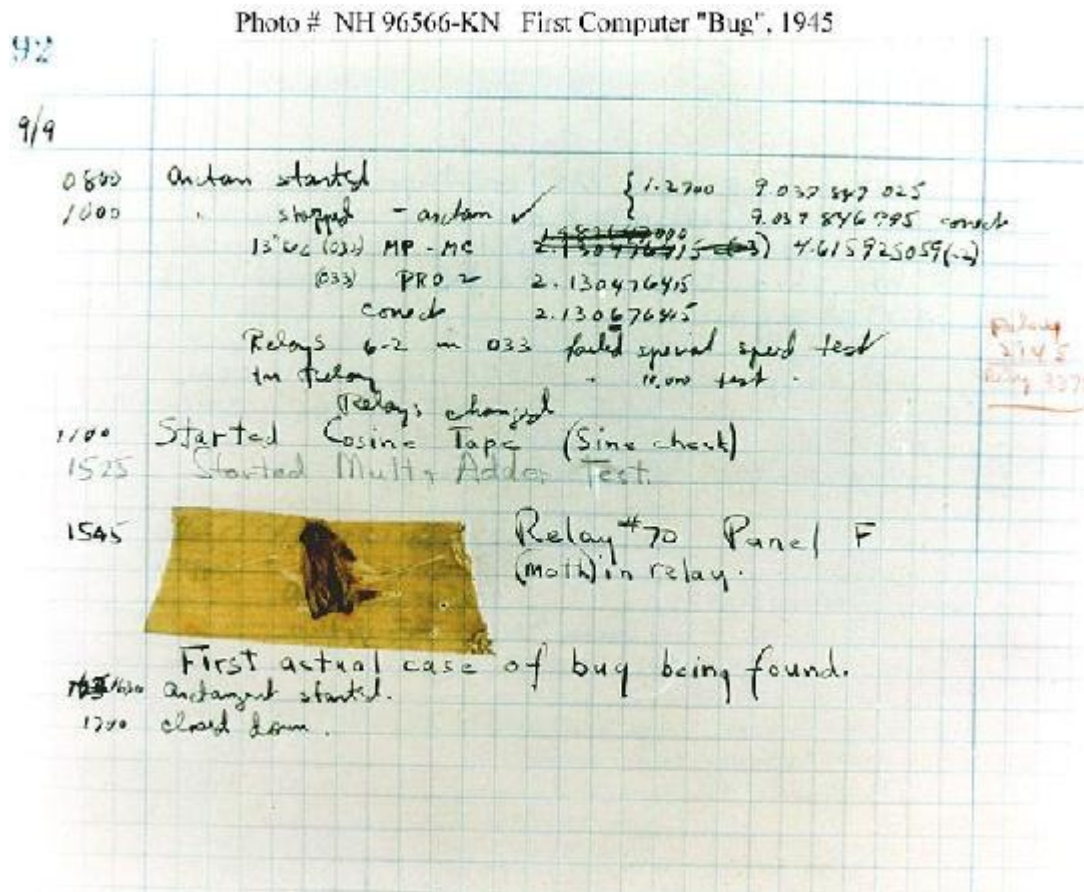 Photo # NH 96566-KN First Computer "Bug", 1945
92
9/9
0800 Antan started { 1.2700 9.037 847 025
1000 " stopped - antan ✓ 9.037 846 795 conect
13"uc (032) MP - MC 4.615925059(-2)
(033) PRO 2 2.130476415
conect 2.130676415
Relays 6-2 in 033 failed special speed test
in Relay " 10.000 test .
Relays changed
1100 Started Cosine Tape (Sine check)
1525 Started Mult + Adder Test.
1545 Relay #70 Panel F
(moth) in relay.
First actual case of bug being found.
1630 antangent started.
1700 closed down.
Relay
2145
Relay 337